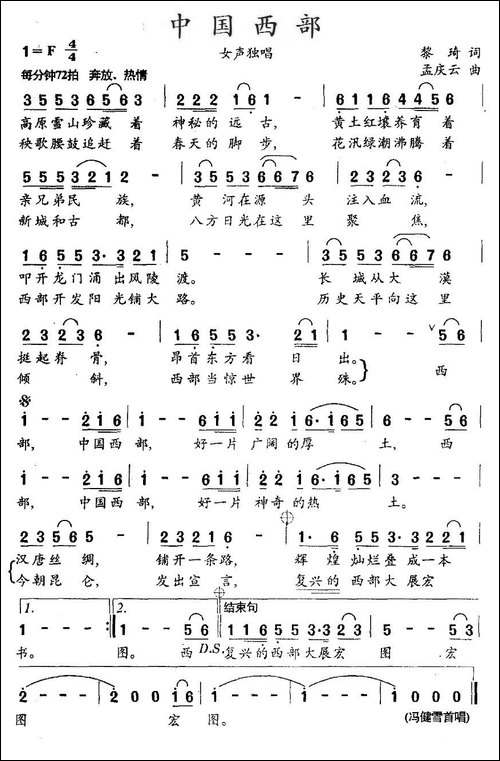 中国西部
1=F 4/4
女声独唱
黎琦 词
孟庆云 曲
每分钟72拍 奔放、热情
3 5 5 3 5 6 5 6 3 | 2 2 2 1 6 1 - | 6 1 1 6 1 6 4 4 5 6 |
高原雪山珍藏着 神秘的远古, 黄土红壤养育着
秧歌腰鼓追赶着 春天的脚步, 花汛绿潮沸腾着
5 5 5 5 3 2 1 2 - | 3 5 5 3 6 6 7 6 | 5 5 3 5 1 3 - |
亲兄弟民族, 黄河在源头 注入血流,
新城和古都, 八方日光在这里 聚焦,
1 6 5 5 3· 3 2 1 | 2 - - - | 3 5 5 3 6 6 7 6 |
叩开龙门涌出风陵 渡。 长城从大漠
西部开发阳光铺大 路。 历史天平向这里
2 3 2 3 6 - | 1 6 5 5 3· | 2 1 | 1 - - 5 6 |
挺起脊骨, 昂首东方看日出。
倾斜, 西部当惊世界殊。 西
1 - - 2 1 6 | 1 - - 6 1 1 | 2 2 1 6·1 6 5 | 5 - - 5 6 |
部, 中国西部, 好一片广阔的厚土, 西
1 - - 2 1 6 | 1 - - 6 1 1 | 2 2 1 6·1 6 5 | 3 - - - |
部, 中国西部, 好一片神奇的热土。
2 3 5 6 5 - | 2 3 2 1 6 - | 1· 6 5 5 3· 3 2 2 1 |
汉唐丝绸, 铺开一条路, 辉煌灿烂叠成一本
今朝昆仑, 发出宣言, 复兴的西部大展宏
1. 2. 结束句
1 - - - :| 1 - - 5 6 | 6 1 1 6 5 5 3· 3 2 3 | 5 - - 5 3 |
书。 图。 西 D.S. 复兴的西部大展宏图 宏
1 - - - | 1 - - - | 2 0 0 1 6 | 1 - - - | 1 - - - | 1 0 0 0 |
图 宏图。 (冯健雪首唱)